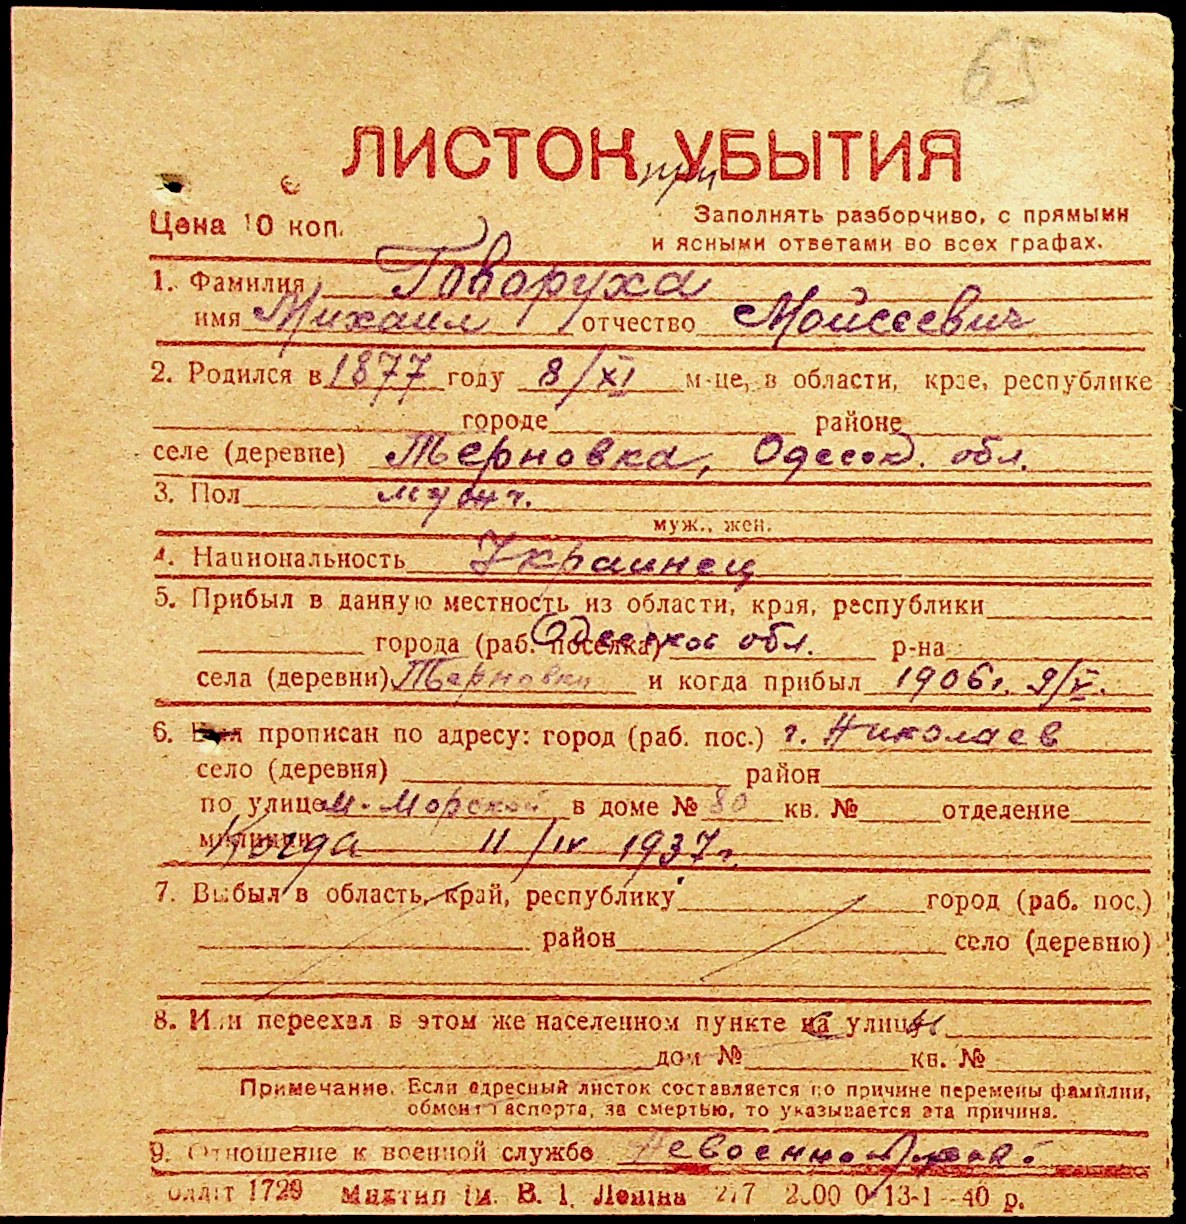 65
ЛИСТОК при УБЫТИЯ
Цена 10 коп.
Заполнять разборчиво, с прямыми
и ясными ответами во всех графах.
1. Фамилия Говоруха
имя Михаил отчество Мойсеевич
2. Родился в 1877 году 8/XI м-це, в области, крае, республике
городе районе
селе (деревне) Терновка, Одесск. обл.
3. Пол мужч.
муж., жен.
4. Национальность Украинец
5. Прибыл в данную местность из области, края, республики
города (раб. поселка) Одесской обл. р-на
села (деревни) Терновки и когда прибыл 1906 г. 9/V.
6. Был прописан по адресу: город (раб. пос.) г. Николаев
село (деревня) район
по улице М. Морской в доме № 80 кв. № отделение
милиции Когда 11/IV 1937 г.
7. Выбыл в область, край, республику город (раб. пос.)
район село (деревню)
8. Или переехал в этом же населенном пункте на улицу
дом № кв. №
Примечание. Если адресный листок составляется по причине перемены фамилии,
обмена паспорта, за смертью, то указывается эта причина.
9. Отношение к военной службе Невоеннообязан.
1729 Миктип им. В. І. Леніна 2000 0-13-1—40 р.